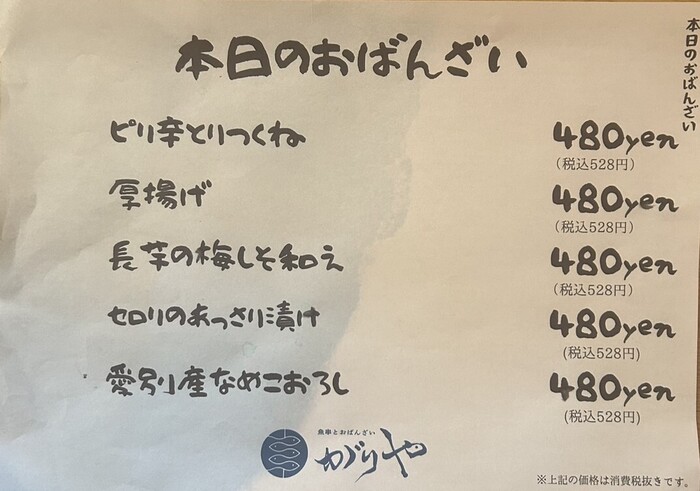 本日のおばんざい
本日のおばんざい
ピリ辛とりつくね 480yen
(税込528円)
厚揚げ 480yen
(税込528円)
長芋の梅しそ和え 480yen
(税込528円)
セロリのあっさり漬け 480yen
(税込528円)
愛別産なめこおろし 480yen
(税込528円)
魚串とおばんざい
かぐりや
※上記の価格は消費税抜きです。